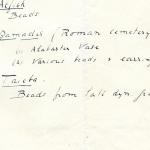 Beads
Qamadir (Roman cemetery
(i) Alabaster Vase
(ii) Various beads & earring
Tarcta.
Beads from late dyn